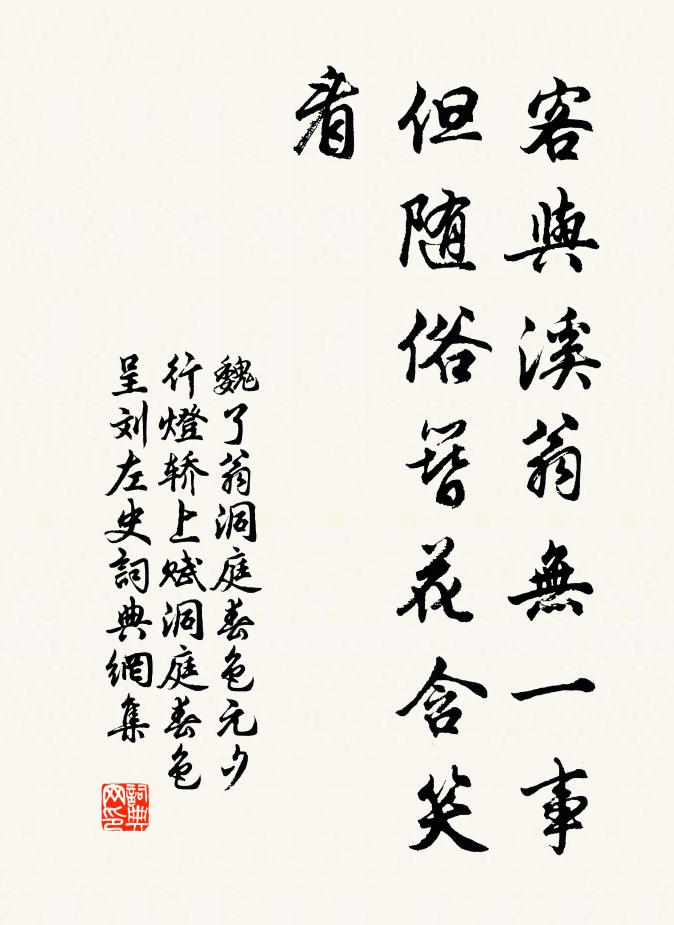 客與溪翁無一事
但随俗簪花含笑
看
魏了翁洞庭春色元夕
行燈轿上赋洞庭春色
呈刘左史詞典網集
詞典
网印